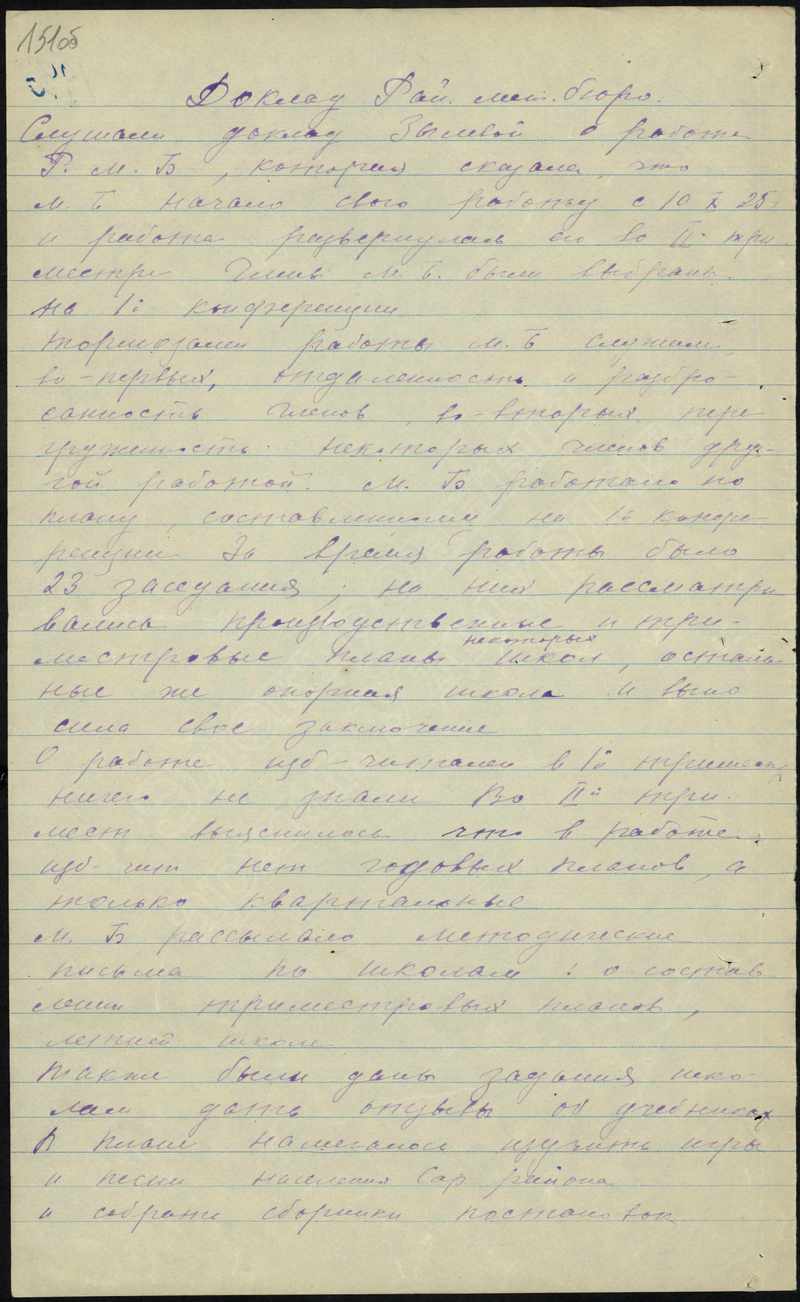 151об
Доклад Рай. мет. бюро.
Слушали доклад Зыевой о работе
Р. М. Б, которая сказала, что
М. Б начало свою работу с 10 X 25
и работа развернулась во II трим
местре Члены М. Б. были выбраны
на 1й конференции
тормозами работы М. Б служили
во-первых, отдаленность и разбро-
санность членов, во-вторых пере
груженность некоторых членов дру-
гой работой. М. Б работало по
плану, составленному на 1й конфе
ренции За время работы было
23 заседания; на них рассматри
вались производственные и три-
местровые планы некоторых школ, осталь
ные же опорная школа и выно
сила свое заключение
О работе изб-читален в 1й тримест
ничего не знали Во IIй три.
мест выяснилось что в работе
изб-чит нет годовых планов, а
только квартальные
М. Б рассылало методические
письма по школам: о состав
лении триместровых планов,
летней школе
Также были даны задания шко-
лам дать отзывы об учебниках
В плане намечалось изучить игры
и песни населения Сар района
и собрать сборники постановок